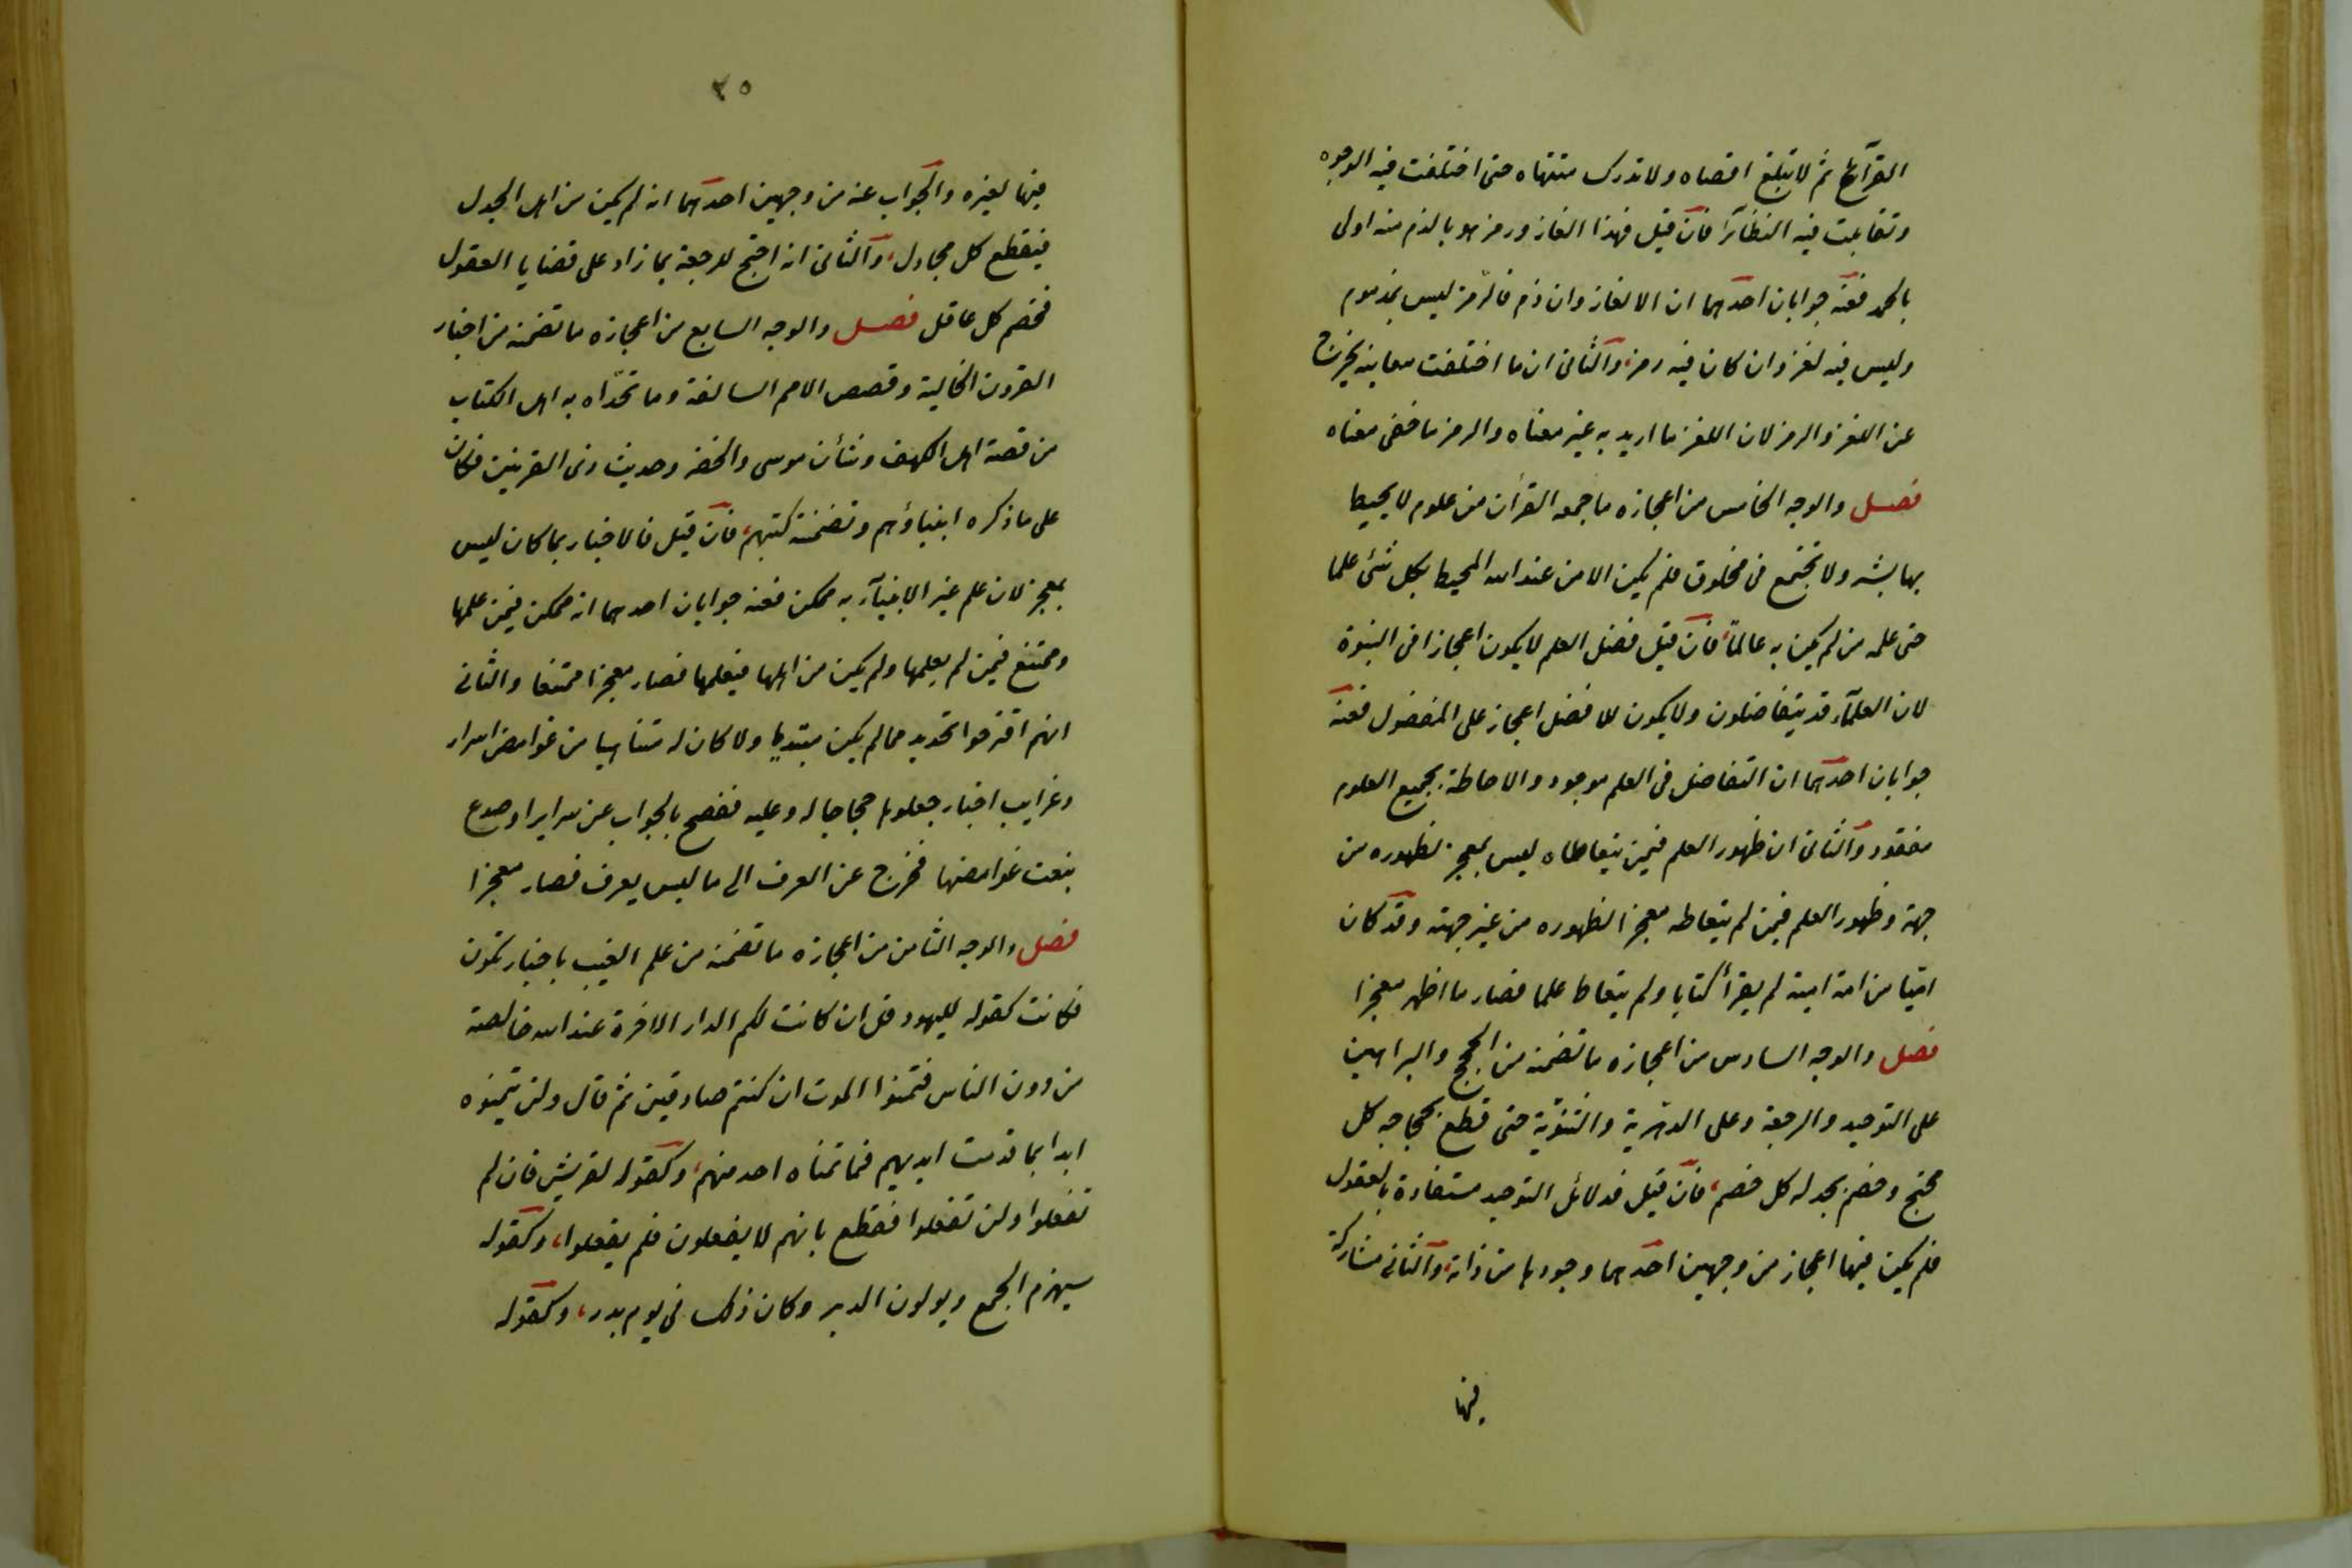 القرآئح ثم لا تبلغ اقصاه ولا تدرك منتهاه حتى اختلفت فيه الوجوه
وتقابلت فيه النظآئر فان قيل فهذا الغاز ورمز هو بالذم منه اولى
بالحمد فعنه جوابان احدهما ان الالغاز وان ذم فالرمز ليس بمذموم
وليس فيه لغز وان كان فيه رمز، والثانى ان ما اختلفت معانيه يخرج
عن اللغز والرمز لان اللغز ما اريد به غير معناه والرمز ما خفى معناه
فصل والوجه الخامس من اعجازه ما جمعه القرأن من علوم لا يحيط
بها بشر ولا تجتمع فى مخلوق فلم يكن الا من عند الله المحيط بكل شئ علما
حتى علمه من لم يكن به عالماً، فان قيل فضل العلم لا يكون اعجازا فى النبوة
لان العلمآء قد يتفاضلون ولا يكون للافضل اعجاز على المفضول فعنه
جوابان احدهما ان التفاضل فى العلم موجود والاحاطة بجميع العلوم
مفقود والثانى ان ظهور العلم فيمن يتعاطاه ليس بمعجز لظهوره من
جهة وظهور العلم فيمن لم يتعاطه معجز لظهوره من غير جهته وقد كان
اميّا من امة امية لم يقرأ كتابا ولم يتعاط علما فصار ما اظهر معجزا
فصل والوجه السادس من اعجازه ما تضمنه من الحجج والبراهين
على التوحيد والرجعة وعلى الدهرية والثنوية حتى قطع بحجاجه كل
محتج وخصم بجدله كل خصم، فان قيل فدلائل التوحيد مستفادة بالعقول
فلم يكن فيها اعجاز من وجهين احدهما وجودها من ذاته، والثانى مشاركة
فيها
٣٥
فيها لغيره والجواب عنه من وجهين احدهما انه لم يكن من اهل الجدل
فيقطع كل مجادل، والثانى انه احتج للرجعة بما زاد على قضايا العقول
فخصم كل عاقل فصل والوجه السابع من اعجازه ما تضمنه من اخبار
القرون الخالية وقصص الامم السالفة وما تحدّاه به اهل الكتاب
من قصة اهل الكهف وشأن موسى والخضر وحديث ذى القرنين فكان
على ما ذكره انبياؤهم وتضمنته كتبهم، فان قيل فالاخبار بما كان ليس
بمعجز لان علم غير الانبيآء به ممكن فعنه جوابان احدهما انه ممكن فيمن علمها
وممتنع فيمن لم يعلمها ولم يكن من اهلها فيعلمها فصار معجزا ممتنعا والثانى
انهم اقترحوا تحديه مما لم يكن مبتديا ولا كان له متناهيا من غوامض اسرار
وغرايب اخبار جعلوها حجاجا له وعليه فقصح بالجواب عن سرايرا وصدع
بنعت غوامضها فخرج عن العرف الى ما ليس يعرف فصار معجزا
فصل والوجه الثامن من اعجازه ما تضمنه من علم الغيب باخبار تكون
فكانت كقوله لليهود قل ان كانت لكم الدار الاخرة عند الله خالصة
من دون الناس فتمنوا الموت ان كنتم صادقين ثم قال ولن يتمنوه
ابدا بما قدمت ايديهم فما تمناه احد منهم، وكقوله لقريش فان لم
تفعلوا ولن تفعلوا فقطع بانهم لا يفعلون فلم يفعلوا، وكقوله
سيهزم الجمع ويولون الدبر وكان ذلك فى يوم بدر، وكقوله